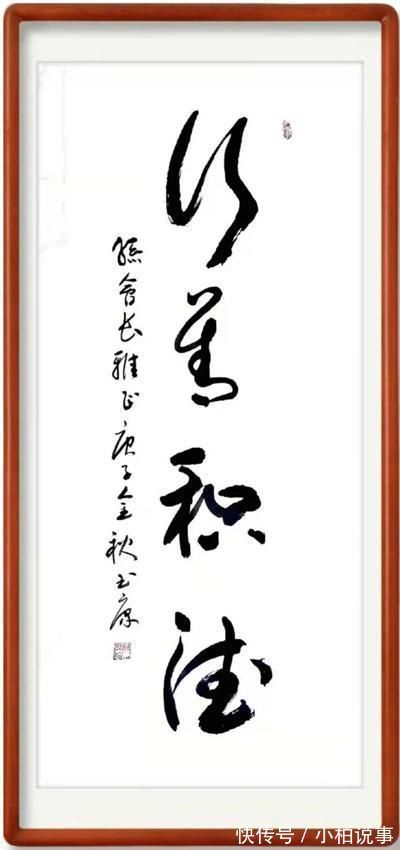 行善积德
孫會长雅正庚子金秋玉康
快传号 / 小柏说事